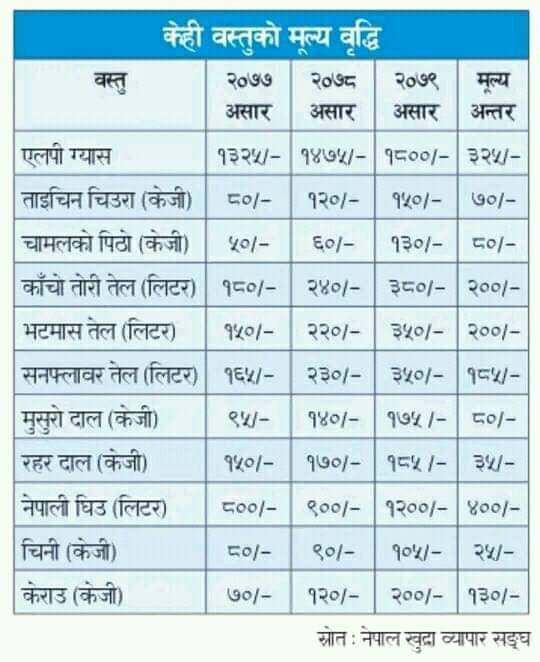 केही वस्तुको मूल्य वृद्धि
वस्तु २०७७ असार २०७८ असार २०७९ असार मूल्य अन्तर
एलपी ग्यास १३२५/- १४७५/- १८००/- ३२५/-
ताइचिन चिउरा (केजी) ८०/- १२०/- १५०/- ७०/-
चामलको पिठो (केजी) ५०/- ६०/- १३०/- ८०/-
काँचो तोरी तेल (लिटर) १८०/- २४०/- ३८०/- २००/-
भटमास तेल (लिटर) १५०/- २२०/- ३५०/- २००/-
सनफ्लावर तेल (लिटर) १६५/- २३०/- ३५०/- १८५/-
मुसुरो दाल (केजी) ९५/- १४०/- १७५/- ८०/-
रहर दाल (केजी) १५०/- १७०/- १८५/- ३५/-
नेपाली घिउ (लिटर) ८००/- ९००/- १२००/- ४००/-
चिनी (केजी) ८०/- ९०/- १०५/- २५/-
केराउ (केजी) ७०/- १२०/- २००/- १३०/-
स्रोत : नेपाल खुद्रा व्यापार सङ्घ